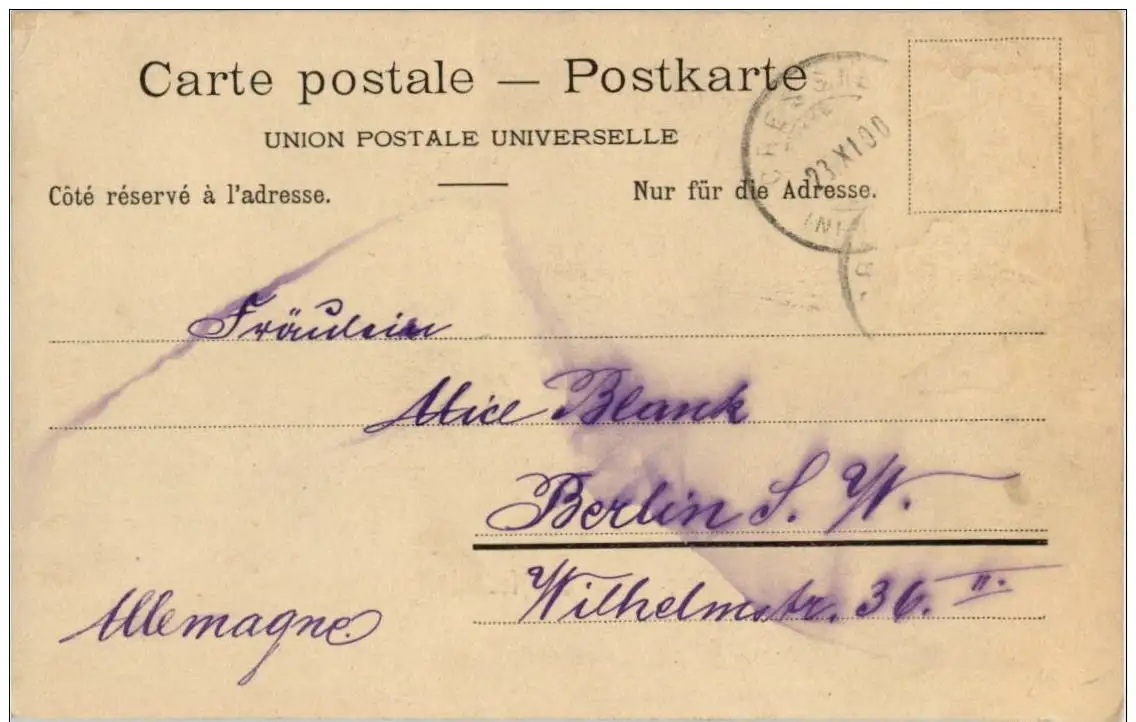 Carte postale — Postkarte
UNION POSTALE UNIVERSELLE
Côté réservé à l'adresse.
Nur für die Adresse.
23 XI 00
Fräulein
Alice Blank
Berlin S. W.
Wilhelmstr. 36. II.
Allemagne.